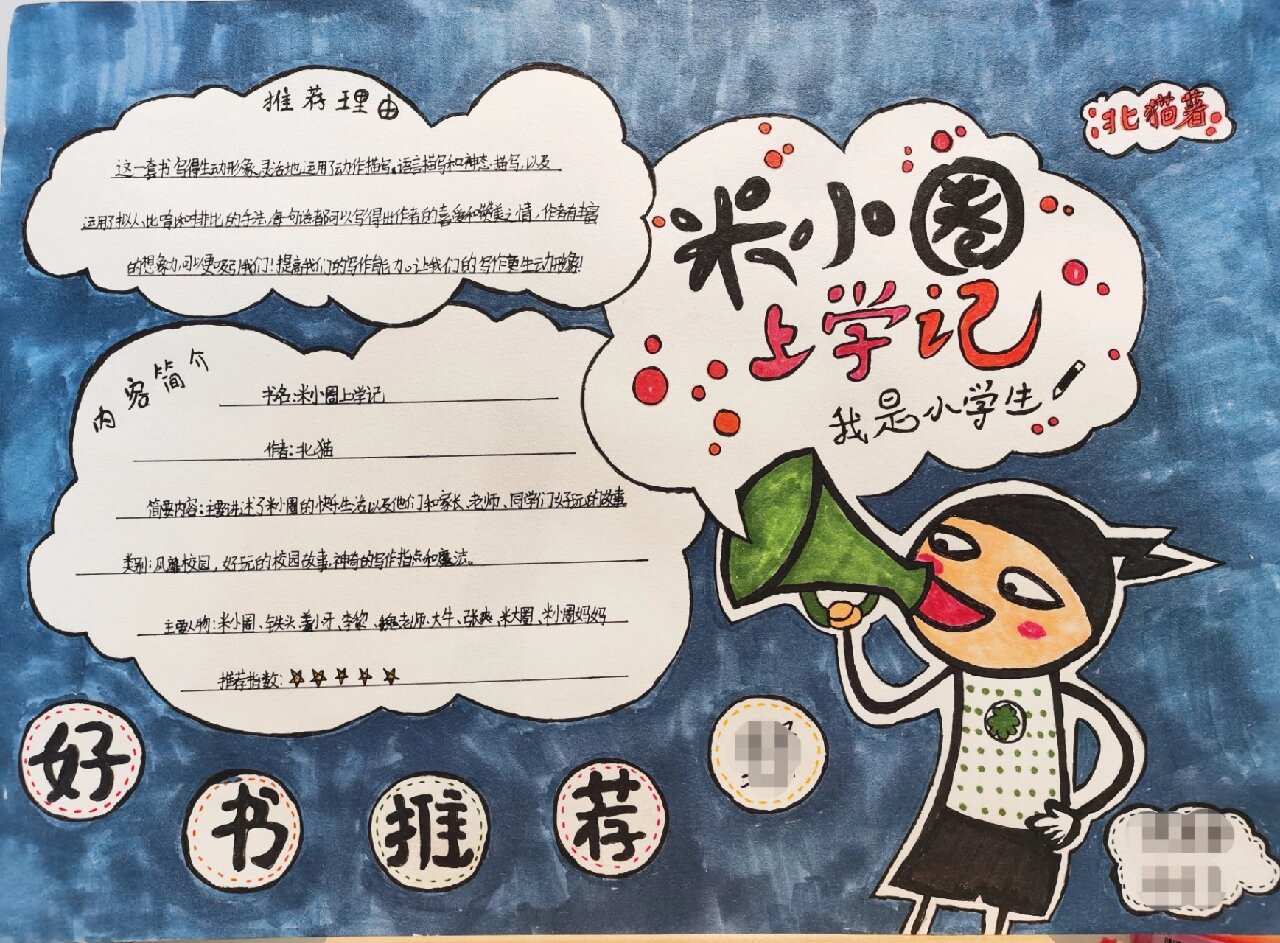 推荐理由
这一套书写得生动形象,灵活地运用了动作描写、语言描写和神态描写,以及
运用了拟人、比喻和排比的手法,每句话都可以写得出作者的喜爱和赞美之情,作者有丰富
的想象力,可以更吸引我们!提高我们的写作能力。让我们的写作更生动形象!
北猫著
米小圈
上学记
我是小学生!
内容简介
书名:米小圈上学记
作者:北猫
简要内容:主要讲述了米小圈的快乐生活以及他们和家长、老师、同学们好玩的故事
类别:风靡校园,好玩的校园故事,神奇的写作指点和魔法。
主要人物:米小圈、铁头、姜小牙、李黎、魏老师、大牛、张爽、米大圈、米小圈妈妈
推荐指数:
好书推荐